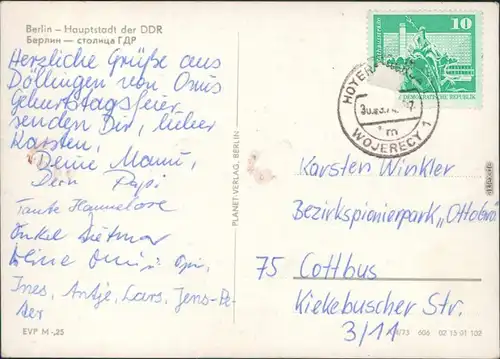 Berlin – Hauptstadt der DDR
Берлин — столица ГДР
Herzliche Grüße aus
Döllingen von Omis
Geburtstagsfeier
senden Dir, lieber
Karsten,
Deine Mami,
Dein Papi
Tante Hannelore
Onkel Dietmar
Deine Omi u. Opi,
Ines, Antje, Lars, Jens-Pe-
ter
EVP M -,25
PLANET-VERLAG, BERLIN
10
DEMOKRATISCHE REPUBLIK
WOJERECY 1
m
Karsten Winkler
Bezirkspionierpark „
75 Cottbus
Kiekebuscher Str.
3/11
606 02 15 01 102